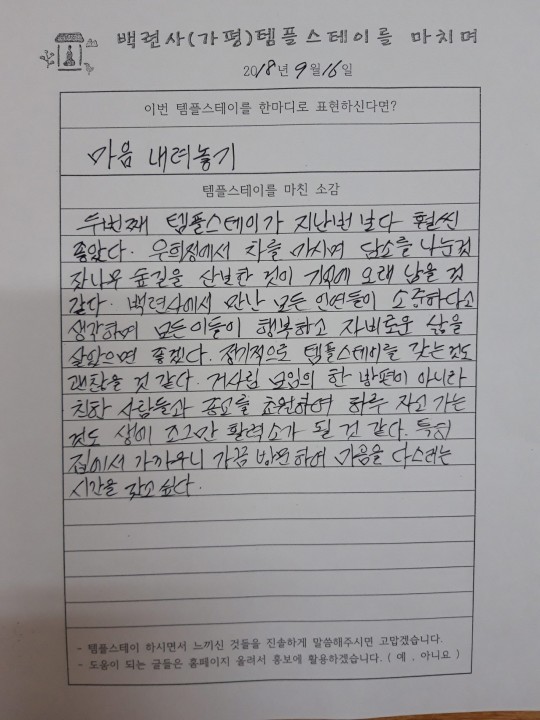 백련사(가평)템플스테이를 마치며
2018년 9월 16일
이번 템플스테이를 한마디로 표현하신다면?
마음 내려놓기
템플스테이를 마친 소감
두번째 템플스테이가 지난번 보다 훨씬
좋았다. 우희정에서 차를 마시며 담소를 나눈것
잣나무 숲길을 산보한 것이 기억에 오래 남을 것
같다. 백련사에서 만난 모든 인연들이 소중하다고
생각하며 모든이들이 행복하고 자비로운 삶을
살았으면 좋겠다. 정기적으로 템플스테이를 갖는것도
괜찮을 것 같다. 거사림 모임의 한 방편이 아니라
친한 사람들과 종교를 초월하여 하루 자고 가는
것도 생에 조그만 활력소가 될 것 같다. 특히
집에서 가까우니 가끔 방문하여 마음을 다스리는
시간을 갖고 싶다.
- 템플스테이 하시면서 느끼신 것들을 진솔하게 말씀해주시면 고맙겠습니다.
- 도움이 되는 글들은 홈페이지 올려서 홍보에 활용하겠습니다. ( 예 , 아니요 )